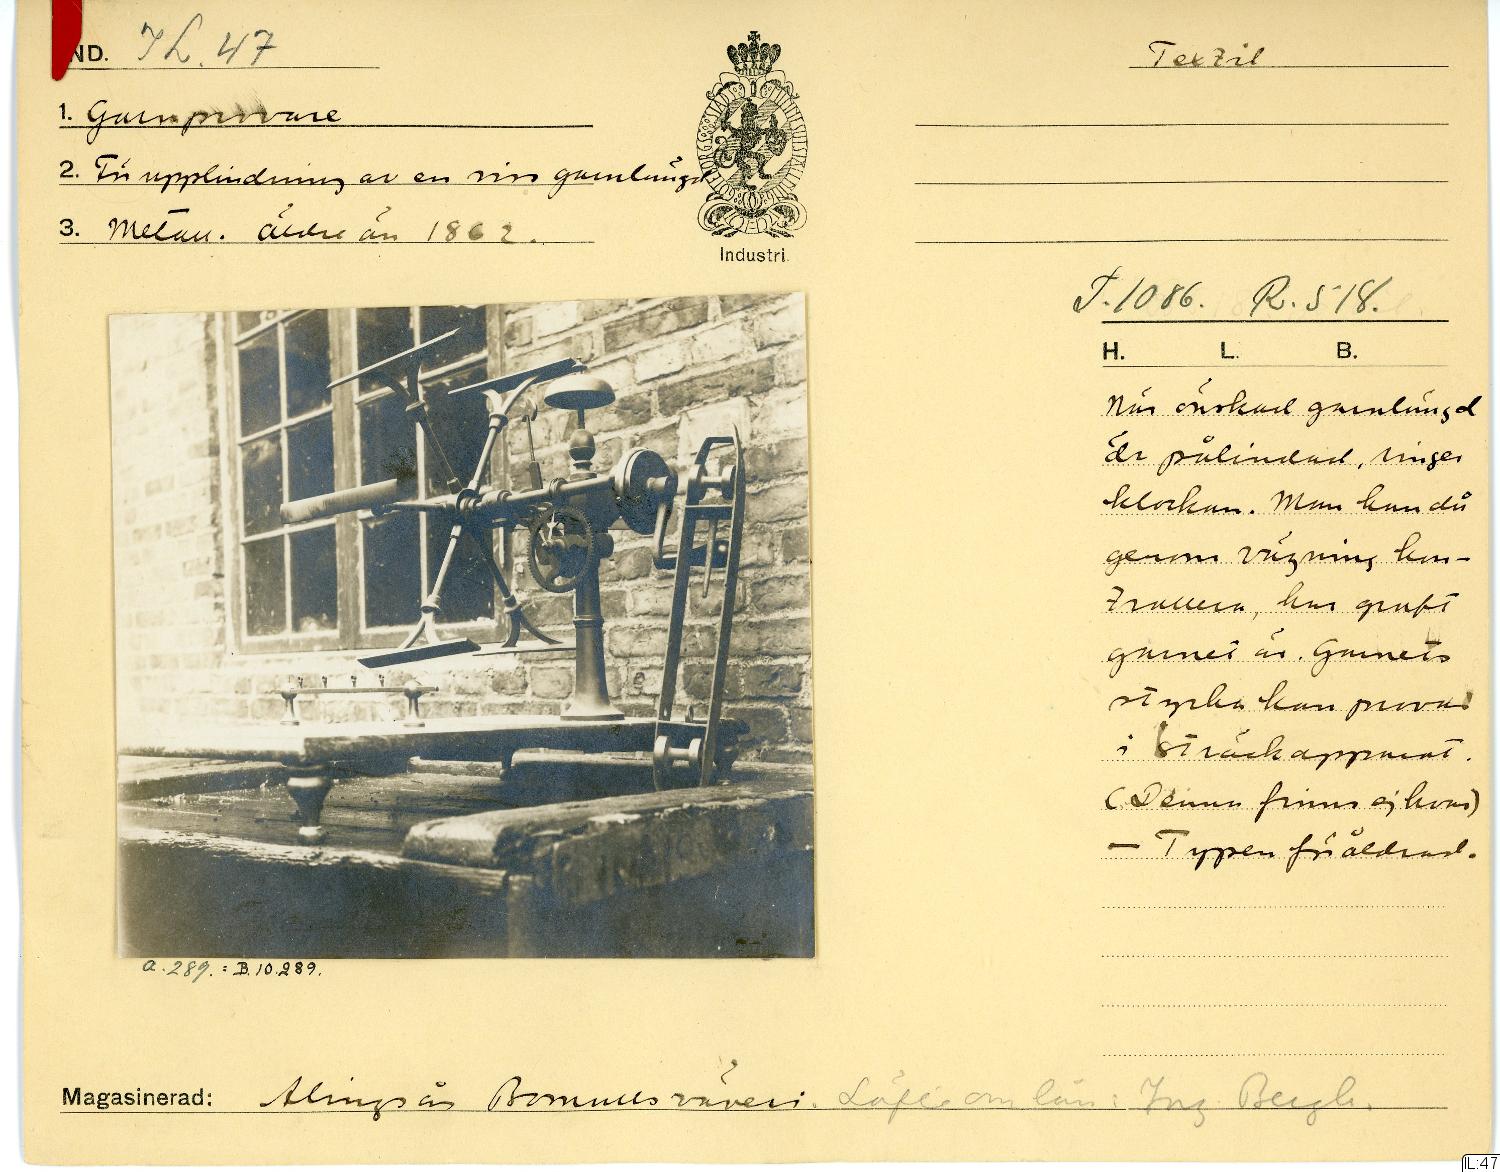 IND. IL. 47
Textil
1. Garnprovare
2. För upplindning av en viss garnlängd
3. Metall. äldre än 1862.
Industri.
F.1086. R.518.
H. L. B.
När önskad garnlängd
är pålindad, ringer
klockan. Man kan då
genom vägning kon-
trollera, hur grovt
garnet är. Garnets
styrka kan provas
i sträckapparat.
(Denna finns ej kvar)
— Typen föråldrad.
a.289. : B.10.289.
Magasinerad: Alingsås Bomullsväveri. Löfte om lån: Ing. Bergh.
IL:47